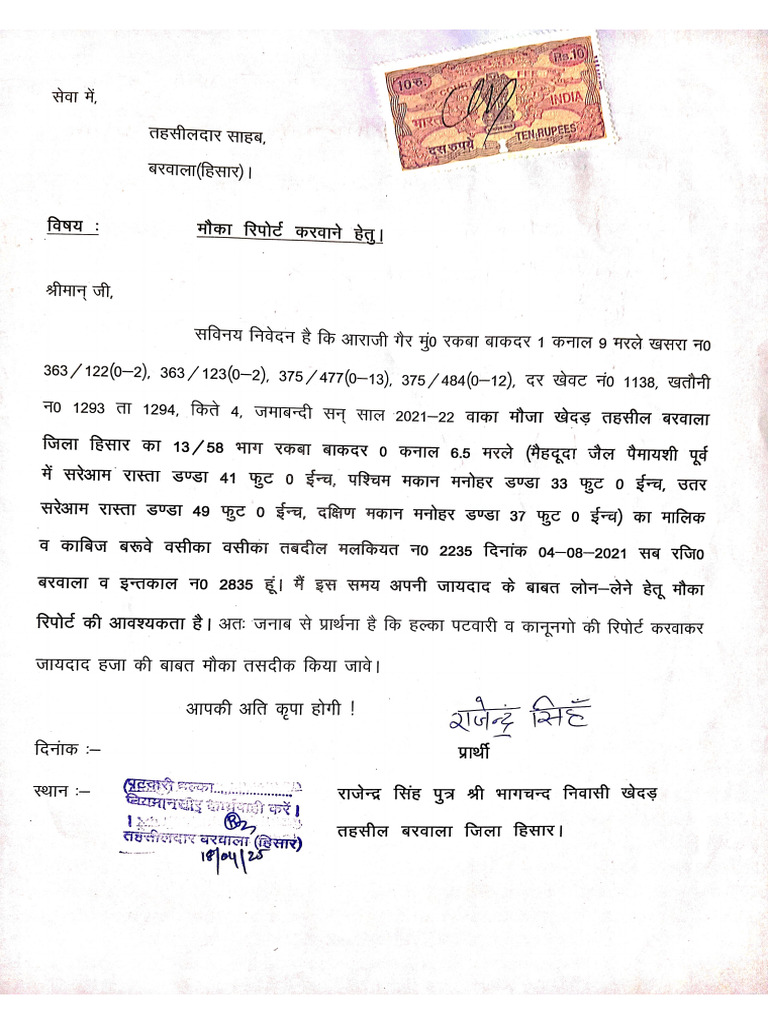 10रु.
Rs.10
भारत
INDIA
दस रुपये
TEN RUPEES
सेवा में,
तहसीलदार साहब,
बरवाला(हिसार)।
विषय : मौका रिपोर्ट करवाने हेतु।
श्रीमान् जी,
सविनय निवेदन है कि आराजी गैर मुं0 रकबा बाकदर 1 कनाल 9 मरले खसरा न0
363/122(0–2), 363/123(0–2), 375/477(0–13), 375/484(0–12), दर खेवट नं0 1138, खतौनी
न0 1293 ता 1294, किते 4, जमाबन्दी सन् साल 2021–22 वाका मौजा खेदड़ तहसील बरवाला
जिला हिसार का 13/58 भाग रकबा बाकदर 0 कनाल 6.5 मरले (मैहदूदा जैल पैमायशी पूर्व
में सरेआम रास्ता डण्डा 41 फुट 0 ईन्च, पश्चिम मकान मनोहर डण्डा 33 फुट 0 ईन्च, उतर
सरेआम रास्ता डण्डा 49 फुट 0 ईन्च, दक्षिण मकान मनोहर डण्डा 37 फुट 0 ईन्च) का मालिक
व काबिज बरूवे वसीका वसीका तबदील मलकियत न0 2235 दिनांक 04–08–2021 सब रजि0
बरवाला व इन्तकाल न0 2835 हूं। मैं इस समय अपनी जायदाद के बाबत लोन–लेने हेतू मौका
रिपोर्ट की आवश्यकता है। अतः जनाब से प्रार्थना है कि हल्का पटवारी व कानूनगो की रिपोर्ट करवाकर
जायदाद हजा की बाबत मौका तसदीक किया जावे।
आपकी अति कृपा होगी !
राजेन्द्र सिहँ
दिनांक :–
प्रार्थी
स्थान :–
पटवारी हल्का....................
करें।
तहसीलदार बरवाला (हिसार)
18/04/25
राजेन्द्र सिंह पुत्र श्री भागचन्द निवासी खेदड़
तहसील बरवाला जिला हिसार।